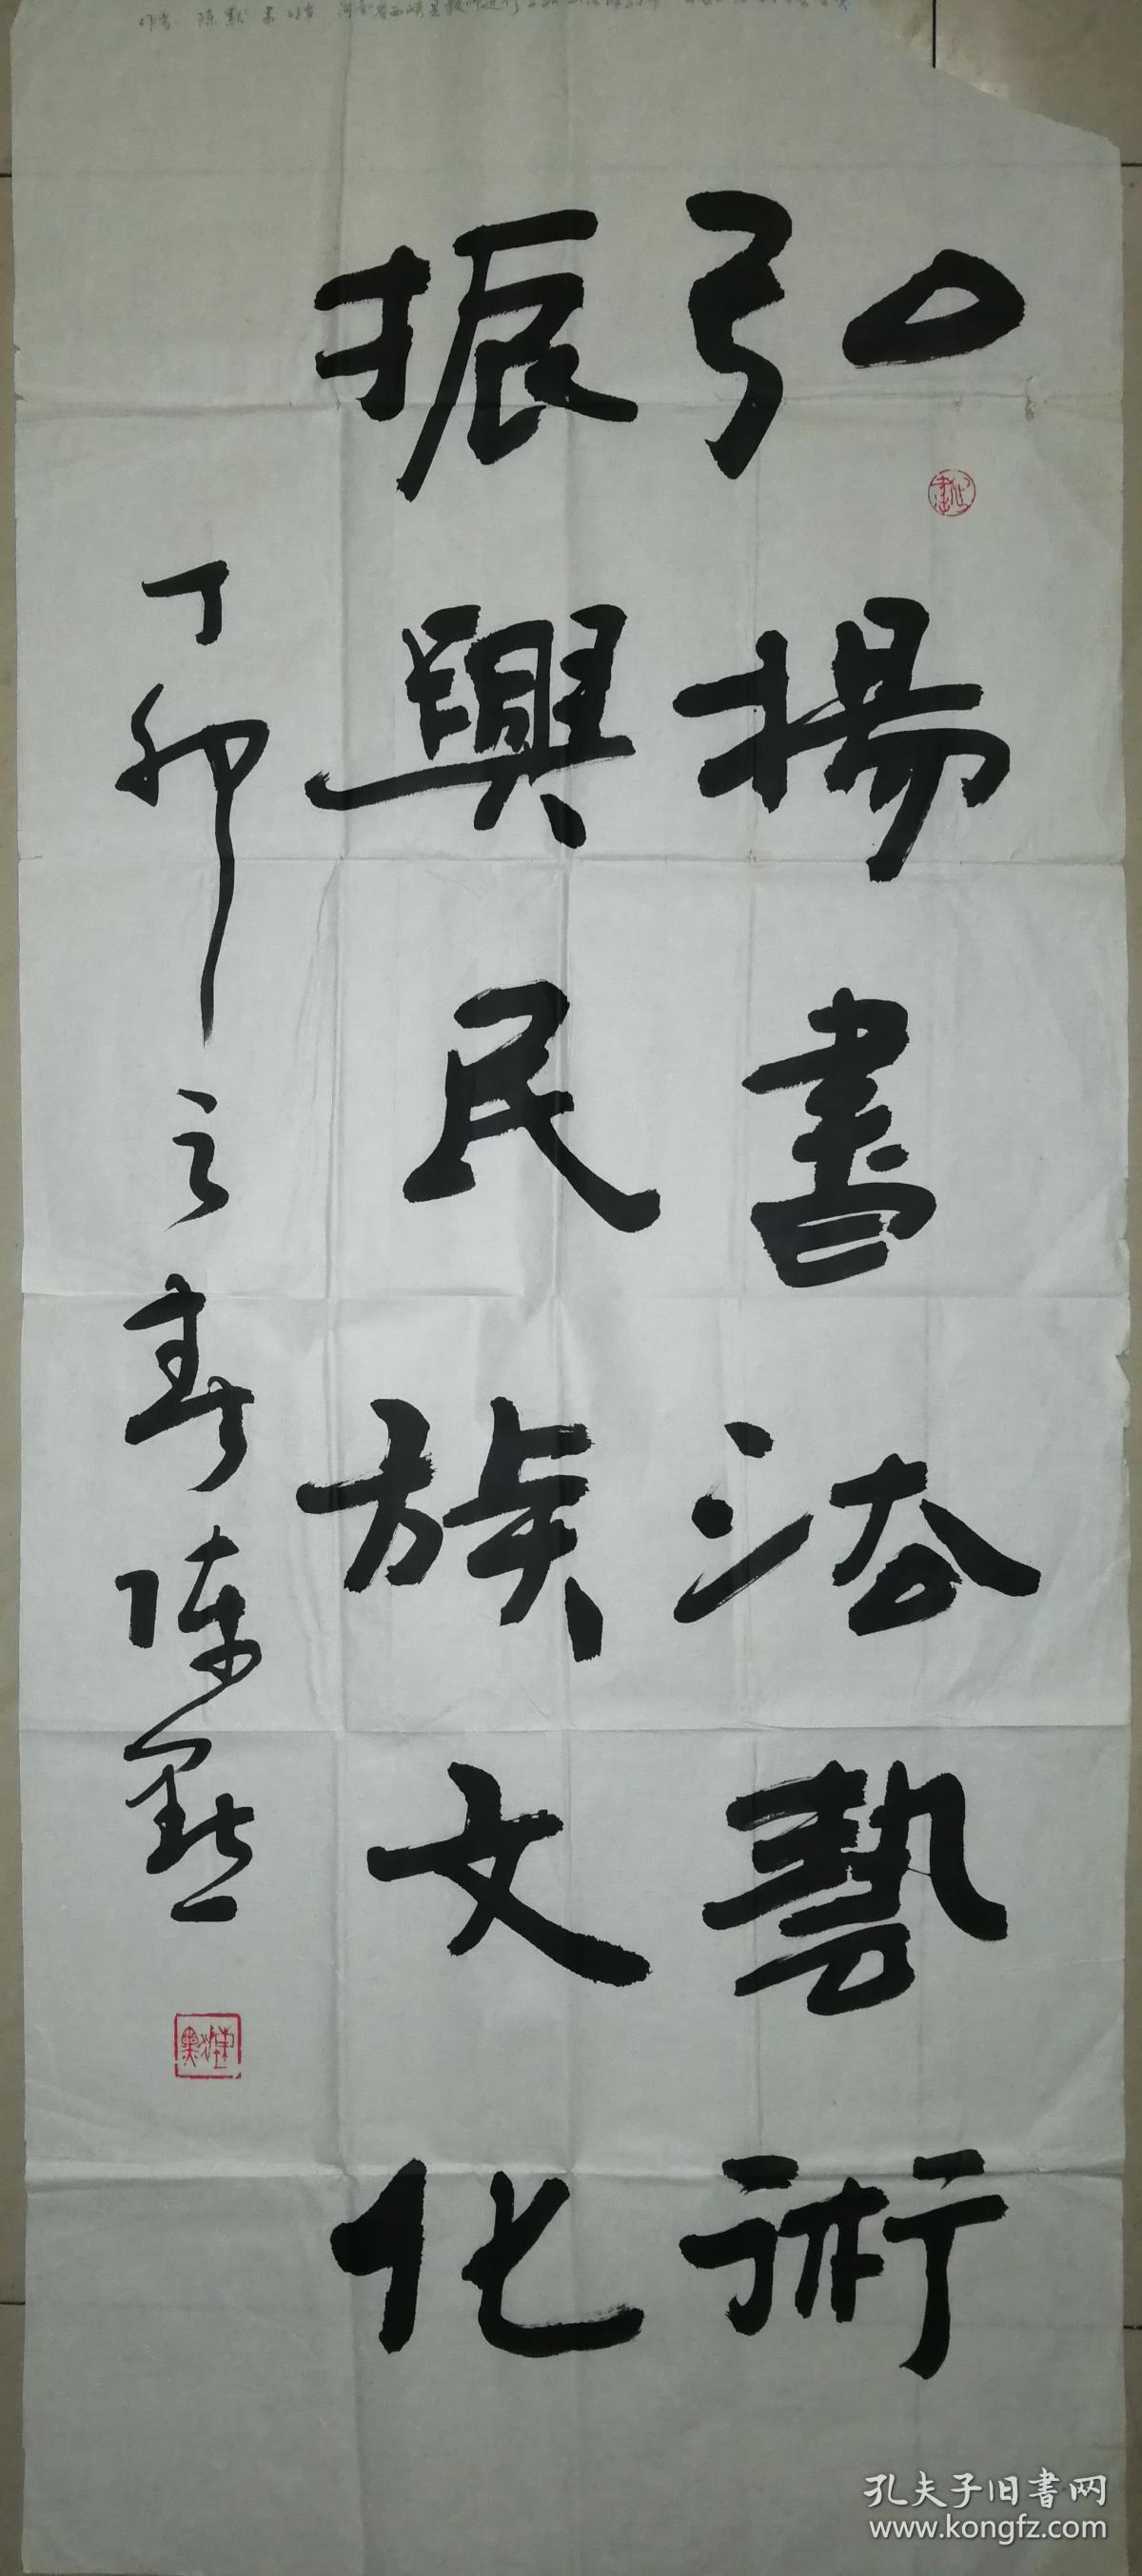 弘揚書法藝術
振興民族文化
丁卯之春陳默
孔夫子旧书网
www.kongfz.com